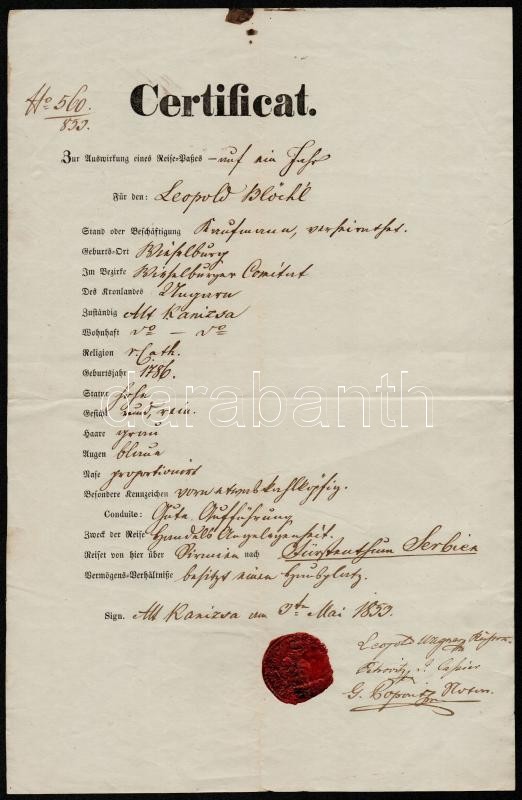 No 560.
853.
Certificat.
Zur Auswirkung eines Reise-Paßes – auf ein Jahr
Für den: Leopold Blöchl
Stand oder Beschäftigung Kaufmann, verheirathet.
Geburts-Ort Wieselburg
Im Bezirke Wieselburger Comitat
Des Kronlandes Ungarn
Zuständig Alt Kanizsa
Wohnhaft do – do
Religion r. Cath.
Geburtsjahr 1786.
Statur hohe
Gesicht rund, rein.
Haare grau
Augen blaue
Nase proportionirt
Besondere Kennzeichen vorn etwas kahlköpfig.
Conduite: Gute Aufführung
Zweck der Reise Handels Angelegenheit.
Reiset von hier über Sirmien nach Fürstenthum Serbien
Vermögens-Verhältniße besitzt einen Hausplatz.
Sign. Alt Kanizsa am 3ten Mai 1853.
Leopold Wagner
Petrovits Cassier
G. Popovits Notär
darabanth